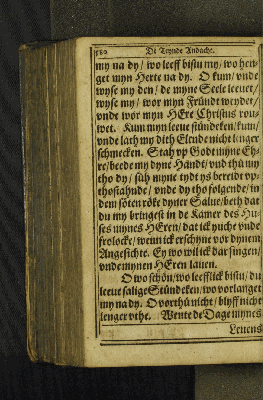 580 De Teynde Andacht.
my na dy/ wo leeff bistu my/ wo hen-
get myn Herte na dy. O kum/ vnde
wyse my den/ de myne Seele leeuet/
wyse my/ wor myn Fründt weydet/
vnde wor myn HErr Christus rou-
wet. Kum myn leeue stündeken/kum/
vnde lath my dith Elende nicht lenger
schmecken. Stah vp Godt myne Eh-
re/ beede my dyne Handt/ vnd thü my
tho dy/ süh myne tydt ys bereidt vp-
thostahnde/ vnde dy tho folgende/ in
dem söten röke dyner Salue/ beth dat
du my bringest in de Kamer des Hu-
ses mynes HEren/ dat ick juche vnde
frolocke/ wenn ick erschyne vor dynem
Angesichte. Ey wo wil ick dar singen/
vnde mynen HEren lauen.
O wo schön/ wo leefflick bistu/ du
leeue salige Stündeken/ wo vorlanget
my na dy. O vorthü nicht/ blyff nicht
lenger vthe. Wente de Dage mynes
Leuens